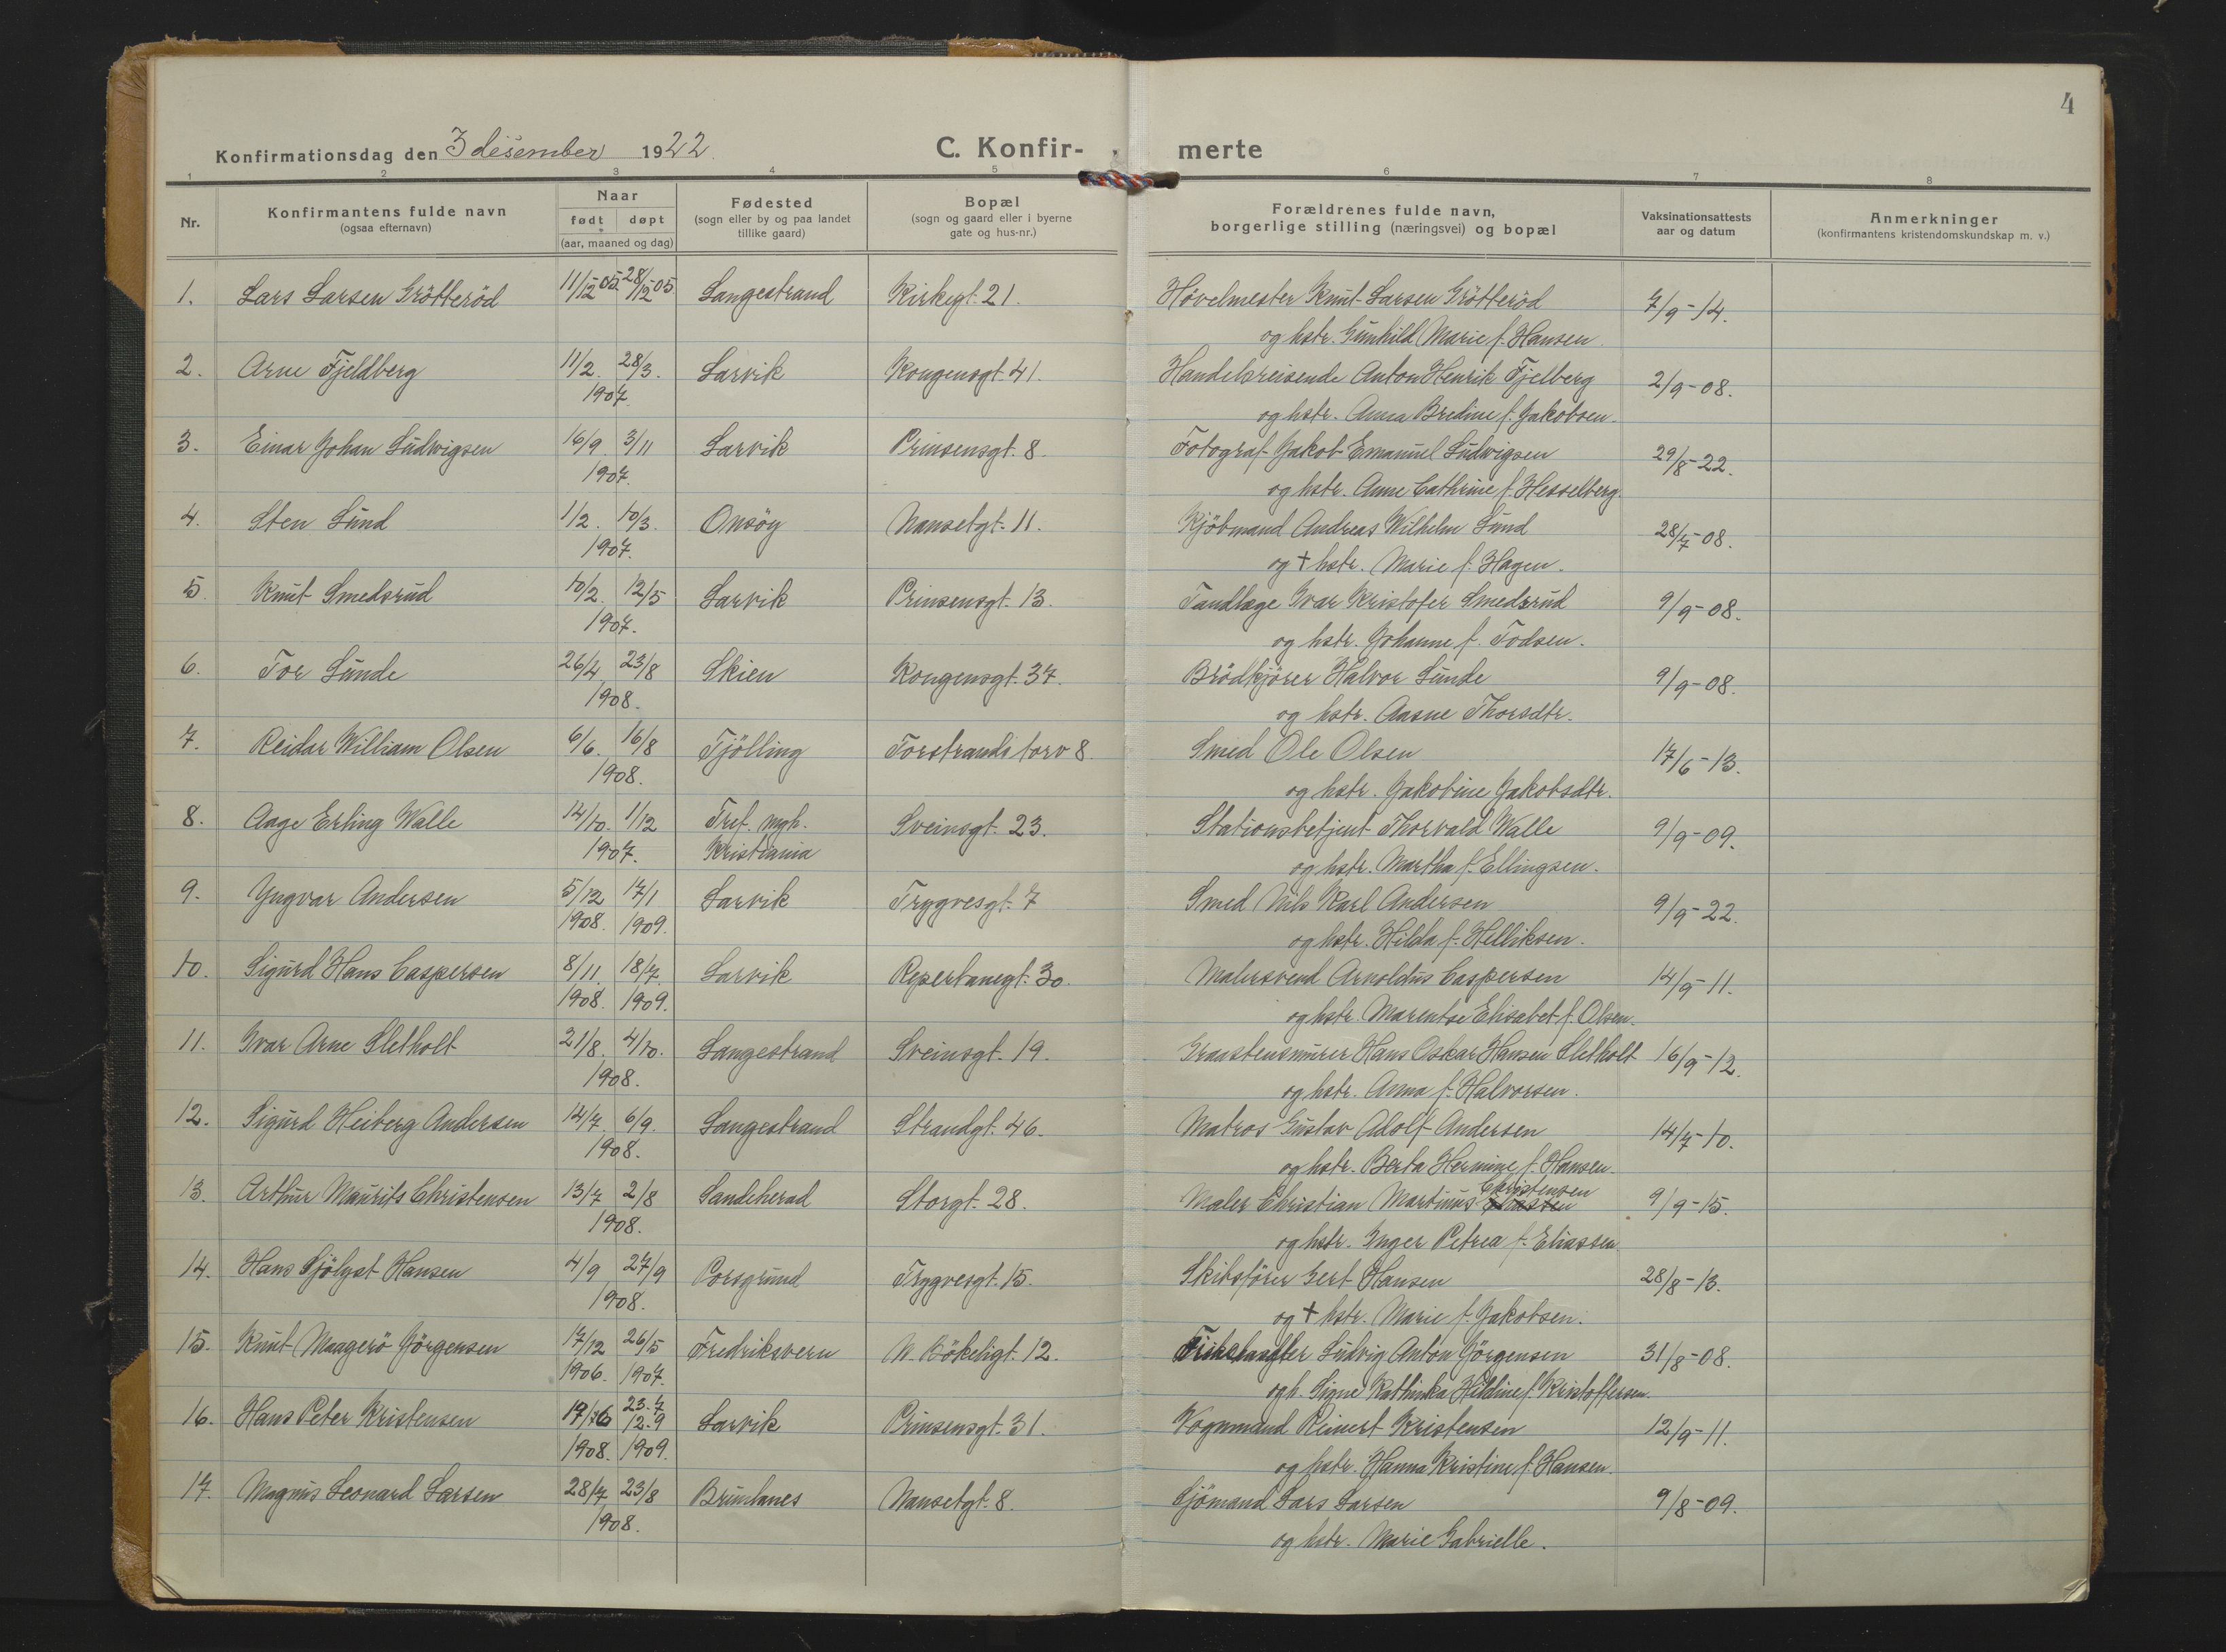 4
Konfirmationsdag den 3 desember 1922.
C. Konfir- merte
1 2 3 4 5 6 7 8
Nr.
Konfirmantens fulde navn
(ogsaa efternavn)
Naar
født døpt
(aar, maaned og dag)
Fødested
(sogn eller by og paa landet
tillike gaard)
Bopæl
(sogn og gaard eller i byerne
gate og hus-nr.)
Forældrenes fulde navn,
borgerlige stilling (næringsvei) og bopæl
Vaksinationsattests
aar og datum
Anmerkninger
(konfirmantens kristendomskundskap m. v.)
1. Lars Larsen Grötteröd 11/12 05. 28/12-05 Langestrand Kirkegt. 21. Hövelmester Knut Larsen Grötteröd 7/9-14.
og hstr. Gunhild Marie f. Hansen.
2. Arne Fjeldberg 11/2. 28/3. Larvik Kongensgt. 41. Handelsreisende Anton Henrik Fjelberg 2/9-08.
1907. og hstr. Anna Bredine f. Jakobsen.
3. Einar Johan Ludwigsen 16/9. 3/11 Larvik Prinsensgt. 8. Fotograf Jakob Emanuel Ludwigsen 29/8-22.
1907. og hstr. Anne Cathrine f. Hesselberg.
4. Sten Lund 1/2. 10/3. Onsöy Nansetgt. 11. Kjöbmand Andreas Wilhelm Lund 28/7-08.
1907. og + hstr. Marie f. Hagen.
5. Knut Smedsrud 10/2. 12/5 Larvik Prinsensgt. 13. Tandlæge Ivar Kristofer Smedsrud 9/9-08.
1907. og hstr. Johanne f. Todsen.
6. Tor Lunde 26/4 23/8 Skien Kongensgt. 37. Brödkjörer Halvor Lunde 9/9-08.
1908. og hstr. Aasne Thorsdtr.
7. Reidar William Olsen 6/6. 16/8 Tjölling Torstrands torv 8. Smed Ole Olsen 17/6-13.
1908. og hstr. Jakobine Jakobsdtr.
8. Aage Erling Walle 14/10. 1/12 Tref. mgh. Sveinsgt. 23. Stationsbetjent Thorvald Walle 9/9-09.
1907. Kristiania og hstr. Martha f. Ellingsen.
9. Yngvar Andersen 5/12 17/1 Larvik Trygvesgt. 7 Smed Nils Karl Andersen 9/9-22.
1908. 1909. og hstr. Hilda f. Helliksen.
10. Sigurd Hans Caspersen 8/11. 18/7. Larvik Reperbanegt. 30. Malersvend Arnoldus Caspersen 14/9-11.
1908. 1909. og hstr. Marentse Elisabet f. Olsen.
11. Ivar Arne Sletholt 21/8. 4/10. Langestrand Sveinsgt. 19. Graastensmurer Hans Oskar Hansen Sletholt 16/9-12.
1908. og hstr. Anna f. Halvorsen.
12. Sigurd Heiberg Andersen 14/7. 6/9. Langestrand Strandgt. 46. Matros Gustav Adolf Andersen 14/7-10.
1908. og hstr. Berta Hermine f. Hansen.
13. Arthur Maurits Christensen 13/7 2/8 Sandeherad Storgt. 28. Maler Christian Martinus Christensen 9/9-15.
1908. og hstr. Inger Petrea f. Eliassen.
14. Hans Sjölyst Hansen 4/9 27/9 Porsgrund Trygvesgt. 15. Skibsförer Gert Hansen 28/8-13.
1908. og + hstr. Marie f. Jakobsen.
15. Knut Maagerö Jörgensen 17/12 26/5 Fredriksvern N. Bökeligt. 12. Ludvig Anton Jörgensen 31/8-08.
1906. 1907. og h. Signe Kathinka Hildine f. Kristoffersen.
16. Hans Peter Kristensen 23.7 12.9 Larvik Prinsensgt. 31. Vognmand Reinert Kristensen 12/9-11.
1908. 1909. og hstr. Hanna Kristine f. Hansen.
17. Magnus Leonard Larsen 28/7 23/8 Brunlanes Nansetgt. 8. Sjömand Lars Larsen 9/8-09.
1908. og hstr. Marie Gabrielle.